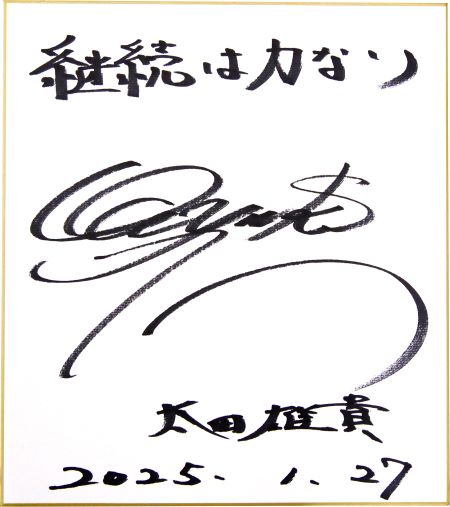 継続は力なり
太田雄貴
2025. 1. 27